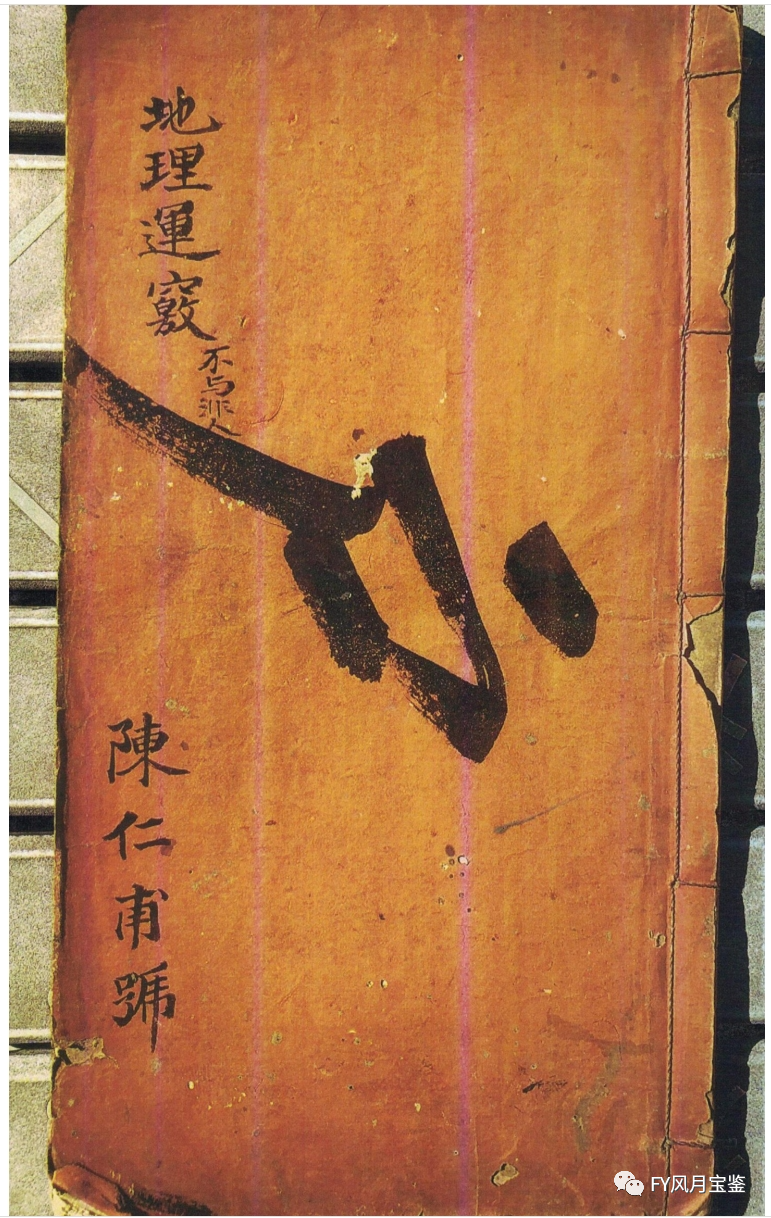 地理運竅
不与非人
陳仁甫號
FY风月宝鉴